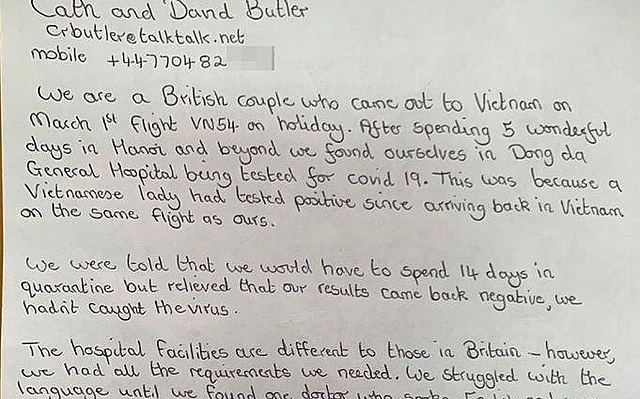 Cath and David Butler
crbutler@talktalk.net
mobile +44770482
We are a British couple who came out to Vietnam on
March 1st flight VN54 on holiday. After spending 5 wonderful
days in Hanoi and beyond we found ourselves in Dong da
General Hospital being tested for covid 19. This was because a
Vietnamese lady had tested positive since arriving back in Vietnam
on the same flight as ours.
We were told that we would have to spend 14 days in
quarantine but relieved that our results came back negative, we
hadn't caught the virus.
The hospital facilities are different to those in Britain – however,
we had all the requirements we needed. We struggled with the
language until we found one doctor who